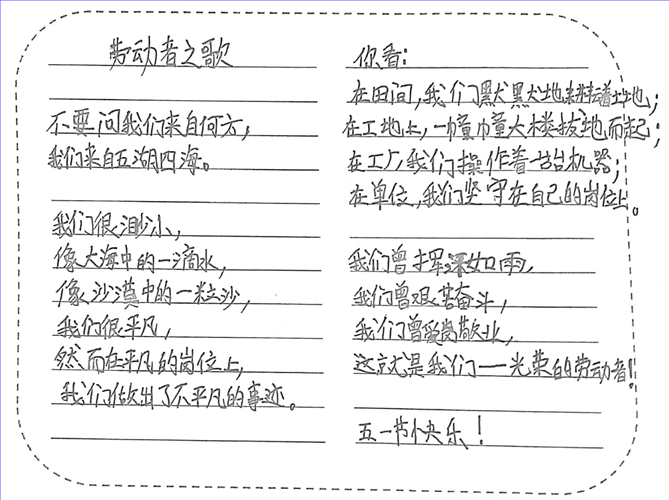 劳动者之歌
不要问我们来自何方,
我们来自五湖四海。
我们很渺小,
像大海中的一滴水,
像沙漠中的一粒沙,
我们很平凡,
然而在平凡的岗位上,
我们做出了不平凡的事迹。
你看:
在田间,我们默默地耕耘着土地;
在工地上,一幢幢大楼拔地而起;
在工厂,我们操作着一台台机器;
在单位,我们坚守在自己的岗位上。
我们曾挥汗如雨,
我们曾艰苦奋斗,
我们曾爱岗敬业,
这就是我们——光荣的劳动者!
五一节快乐!